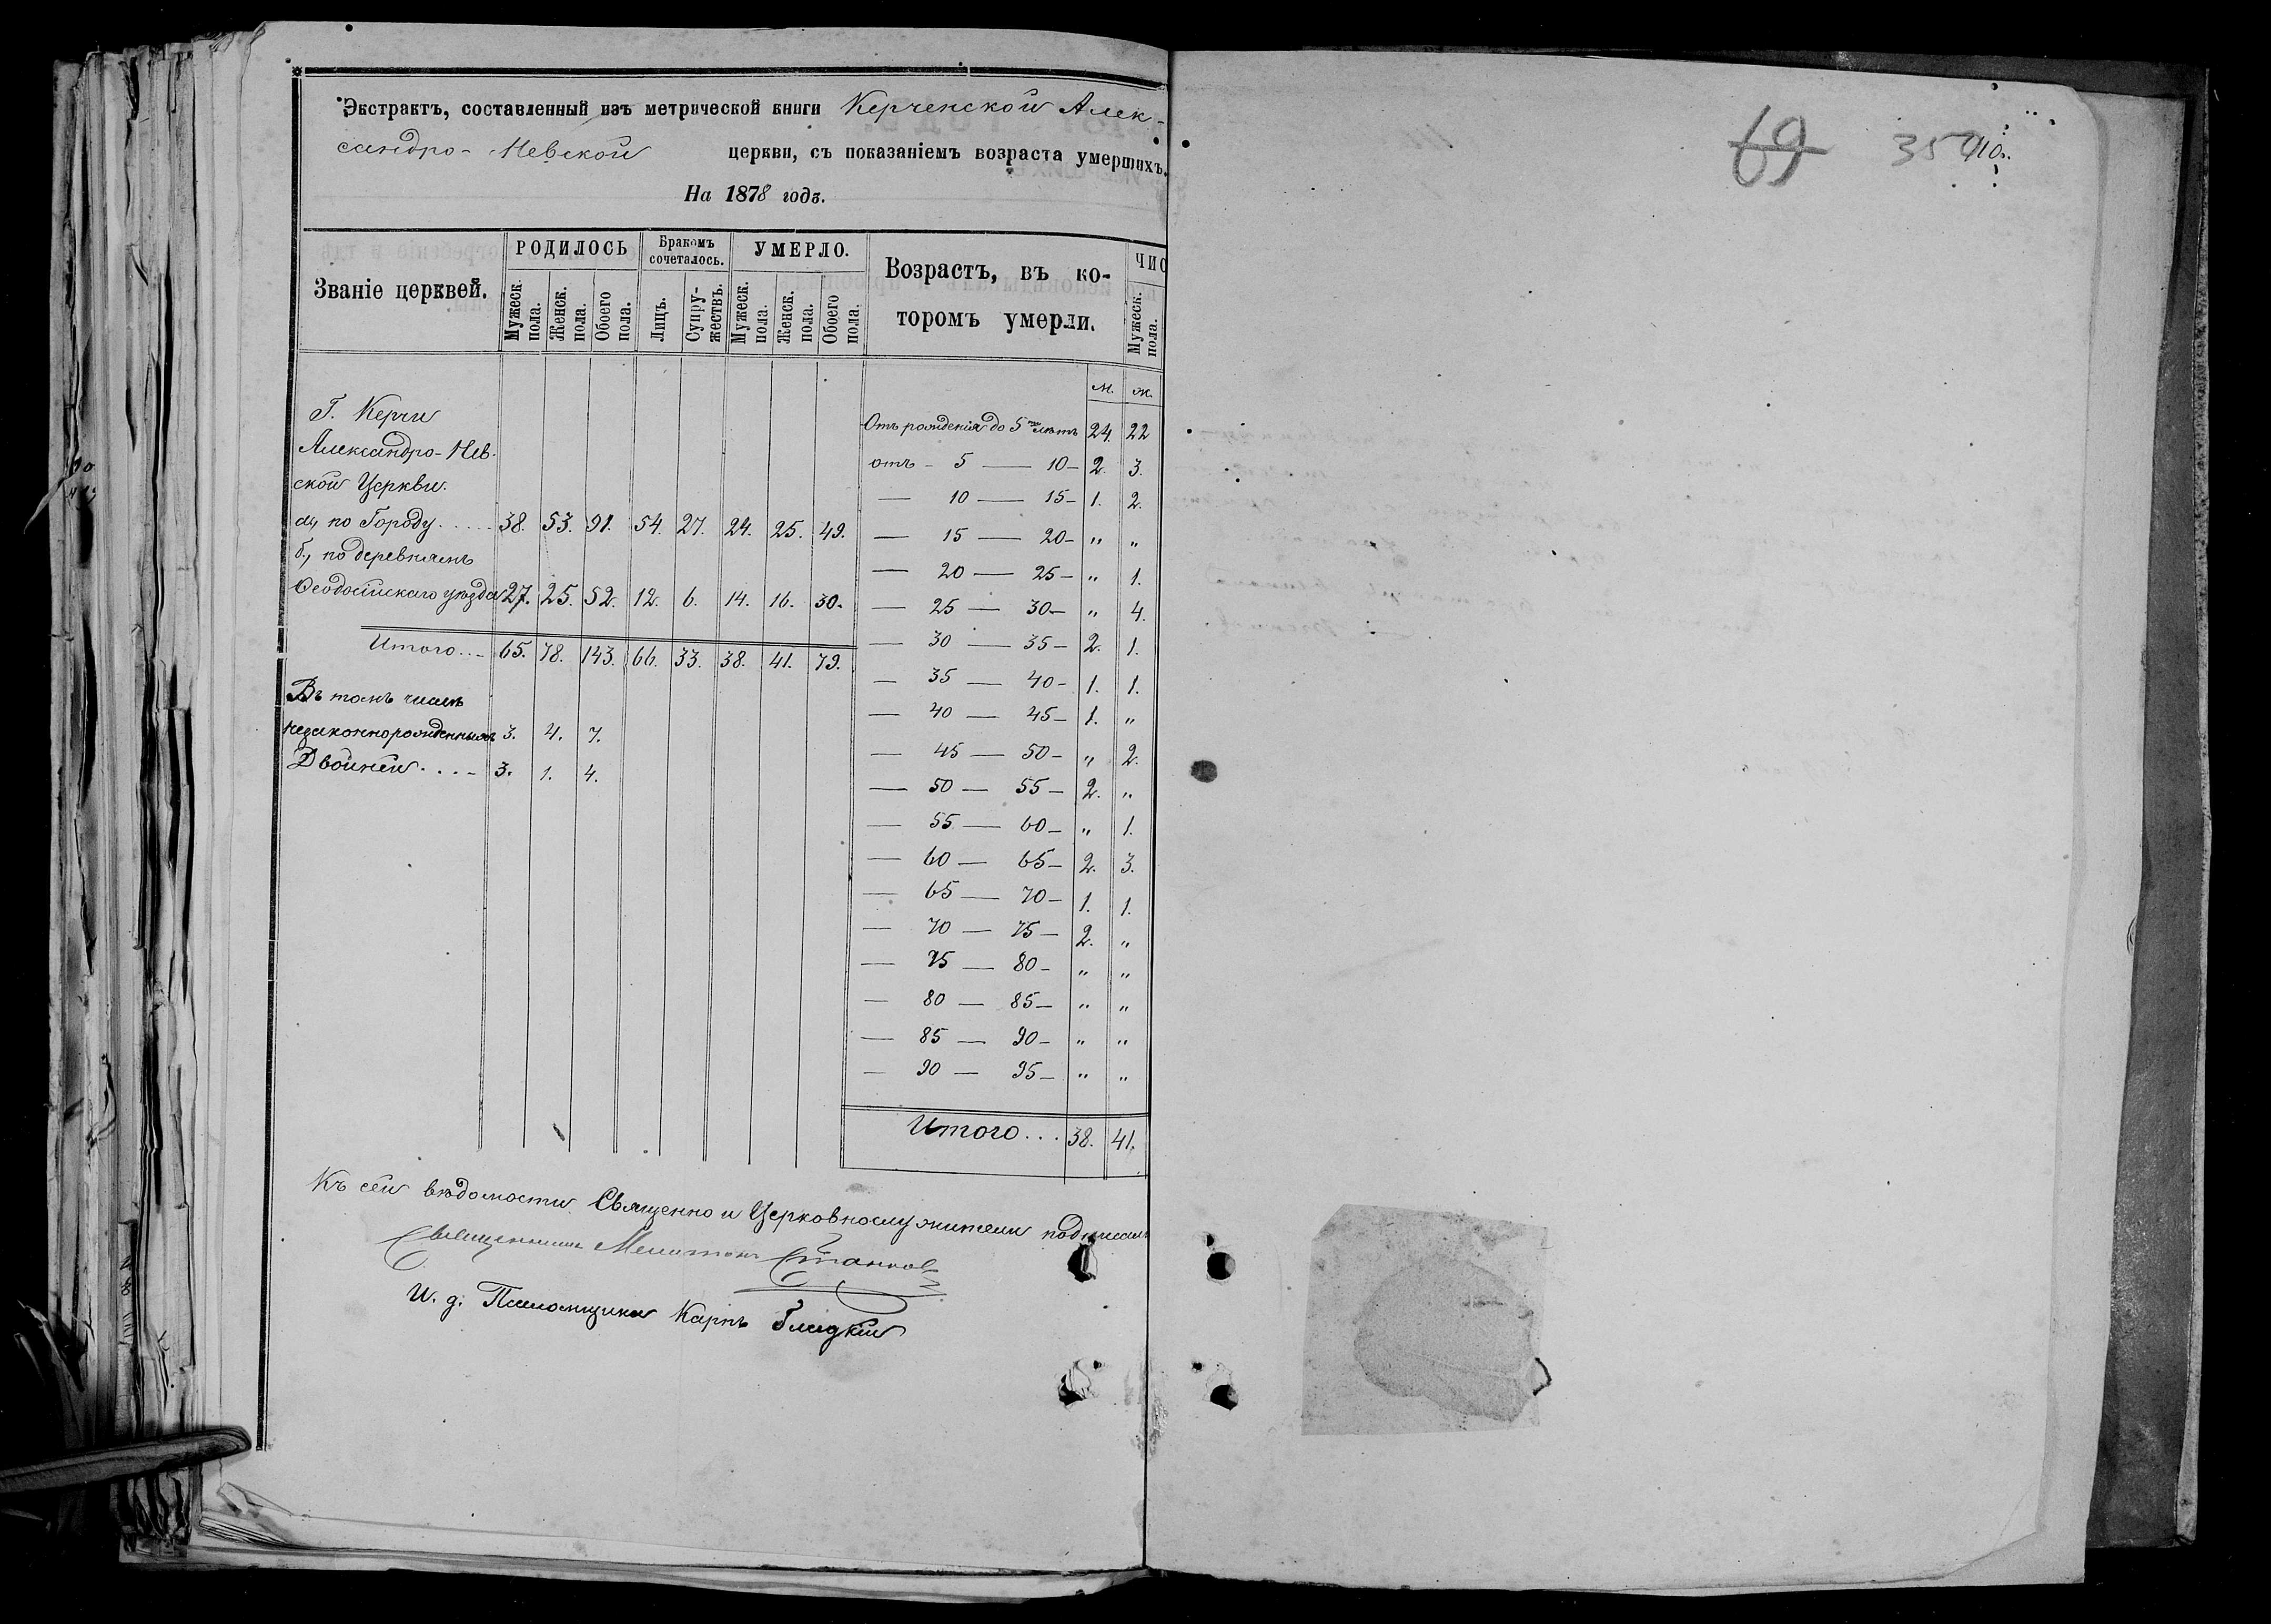 Экстрактъ, составленный изъ метрической книги Керченской Алек-
сандро-Невской церкви, съ показаніемъ возраста умершихъ.
На 1878 годъ.
Званіе церквей.
РОДИЛОСЬ
Мужеск. пола.
Женск. пола.
Обоего пола.
Бракомъ сочеталось.
Лицъ.
Супружествъ.
УМЕРЛО.
Мужеск. пола.
Женск. пола.
Обоего пола.
Возрастъ, въ ко-
торомъ умерли.
ЧИС
Мужеск. пола.
Г. Керчи
Александро-Нев-
ской Церкви.
а, по Городу..... 38. 53. 91. 54. 27. 24. 25. 49.
б., по деревнямъ
Ѳеодосійскаго уѣзда 27. 25. 52. 12. 6. 14. 16. 30.
Итого... 65. 78. 143. 66. 33. 38. 41. 79.
Въ томъ числѣ
незаконнорожденныхъ 3. 4. 7.
Двойней.... 3. 1. 4.
м. ж.
Отъ рожденія до 5 лѣтъ 24. 22
отъ - 5 — 10 - 2. 3.
— 10 — 15 - 1. 2.
— 15 — 20 - " "
— 20 — 25 - " 1.
— 25 — 30 - " 4.
— 30 — 35 - 2. 1.
— 35 — 40 - 1. 1.
— 40 — 45 - 1. "
— 45 — 50 - " 2.
— 50 — 55 - 2. "
— 55 — 60 - " 1.
— 60 — 65 - 2. 3.
— 65 — 70 - 1. 1.
— 70 — 75 - 2. "
— 75 — 80 - " "
— 80 — 85 - " "
— 85 — 90 - " "
— 90 — 95 - " "
Итого... 38. 41.
Къ сей вѣдомости Священно и Церковнослужители подписали
Священникъ Мелитонъ Станков
И. д. Псаломщика Карпъ Гладкій
69